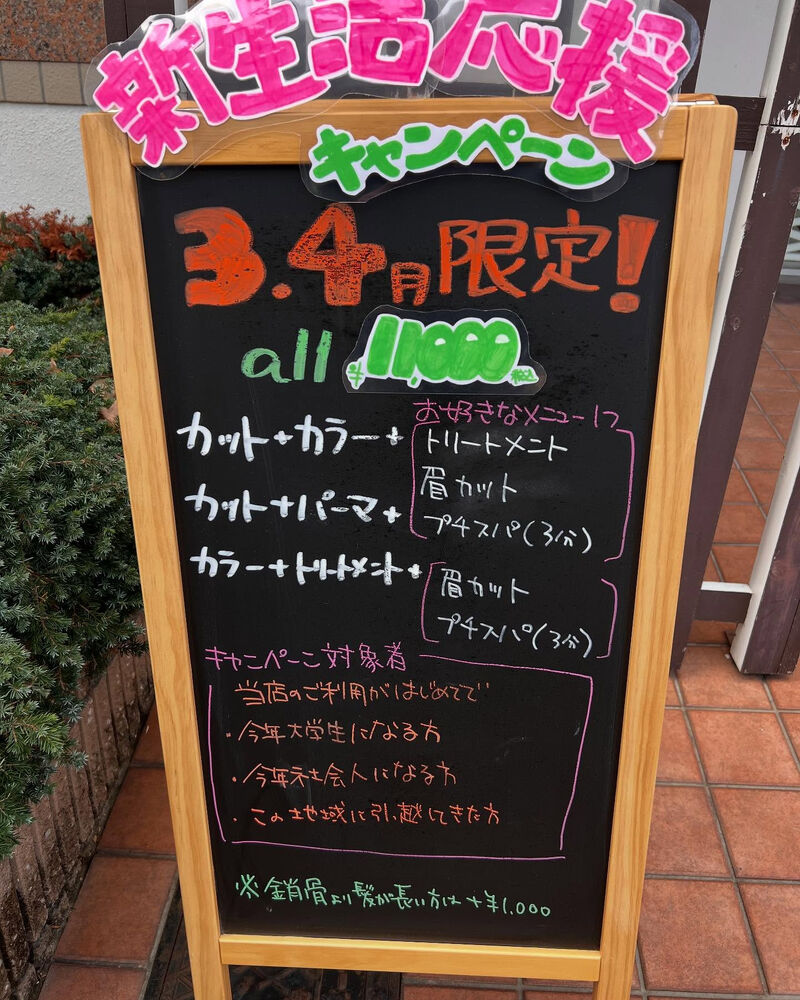 新生活応援
キャンペーン
3.4月限定!
all ¥11,000税込
お好きなメニュー1つ
カット+カラー+
トリートメント
眉カット
カット+パーマ+
プチスパ(3分)
カラー+トリートメント+
眉カット
プチスパ(3分)
キャンペーン対象者
当店のご利用がはじめてで
・今年大学生になる方
・今年社会人になる方
・この地域に引越してきた方
※鎖骨より髪が長い方は+¥1,000